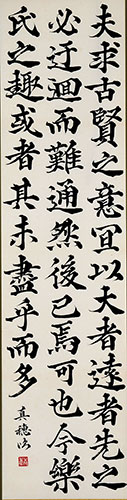 夫求古賢之意宜以大者遠者先之
必迂迴而難通然後已焉可也今樂
氏之趣或者其未盡乎而多
真穂出